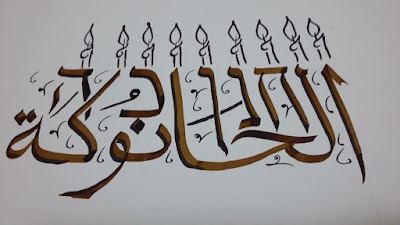 الحانوكة